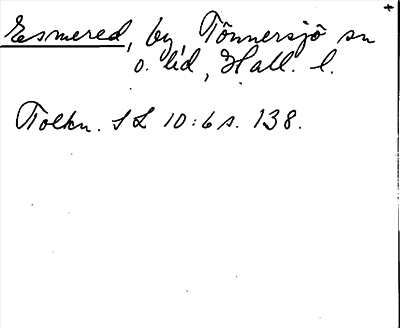 Esmered, by, Tönnersjö sn
o. lid, Hall. l.
Tolkn. SL 10:6 s. 138.